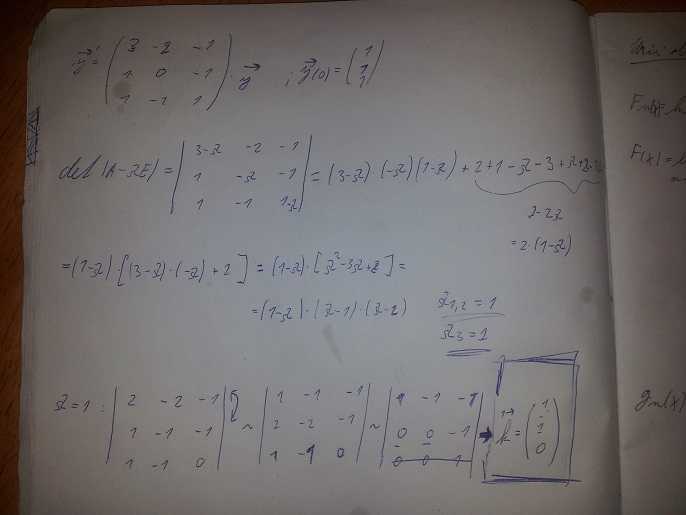 y⃗' = (3 -2 -1; 1 0 -1; 1 -1 1) · y⃗ ; y⃗(0) = (1; 1; 1)
det (A-λE) = |3-λ -2 -1; 1 -λ -1; 1 -1 1-λ| = (3-λ)·(-λ)(1-λ) + 2+1-λ-3+λ+2-2λ
2-2λ
= 2·(1-λ)
= (1-λ)·[(3-λ)·(-λ)+2] = (1-λ)·[λ²-3λ+2] =
= (1-λ)·(λ-1)·(λ-2)
λ1,2 = 1
λ3 = 1
λ=1: |2 -2 -1; 1 -1 -1; 1 -1 0| ~ |1 -1 -1; 2 -2 -1; 1 -1 0| ~ |1 -1 -1; 0 0 -1; 0 0 1| → h⃗ = (1; 1; 0)
F(x)=
gn(x)